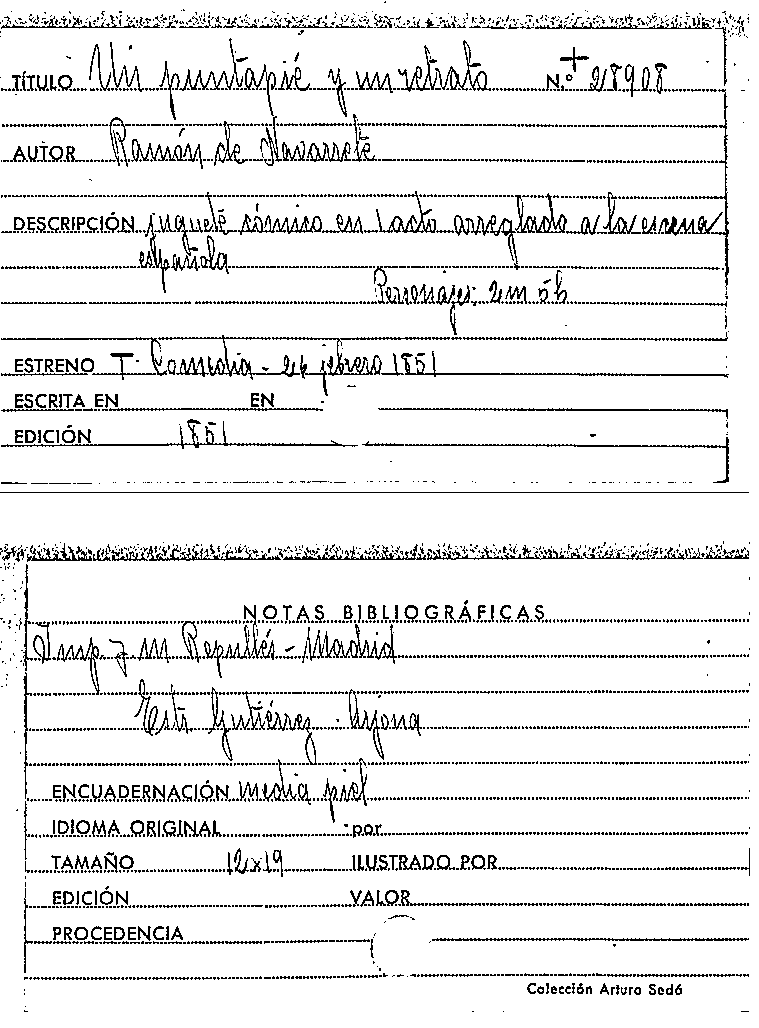 TÍTULO Un puntapié y un retrato N.º + 28908
AUTOR Ramón de Navarrete
DESCRIPCIÓN juguete cómico en 1 acto arreglado a la escena
española
Personajes: 2m 5h
ESTRENO T. Comedia - 26 febrero 1851
ESCRITA EN EN
EDICIÓN 1851
NOTAS BIBLIOGRÁFICAS
Imp J M Repullés - Madrid
Estr Gutiérrez - Arjona
ENCUADERNACIÓN media piel
IDIOMA ORIGINAL por
TAMAÑO 12x19 ILUSTRADO POR
EDICIÓN VALOR
PROCEDENCIA
Colección Arturo Sedó